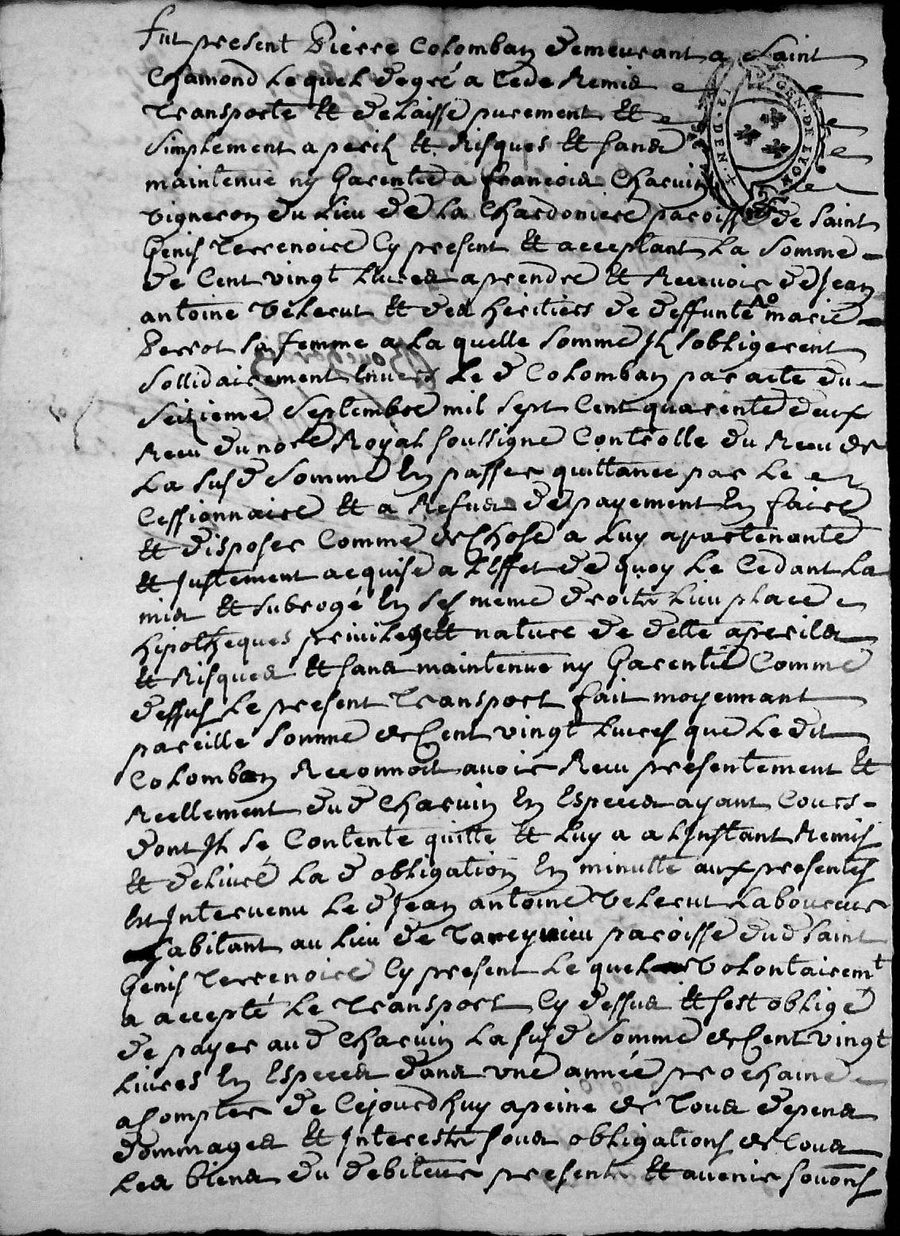 fut present Pierre Colomban demeurant a Saint
Chamond Lequel de gré a Cede Remis
Transporte et delaisse purement et
Simplement a peril et Risques et sans
maintenue ny Garentie a francois Charvin
vigneron du Lieu de La Chardoniere paroisse de Saint
Genis Terrenoire Cy present et acceptant La Somme
de Cent vingt Livres a prendre et Recevoir de Jean
antoine Velerut et des heritiers de deffunte marie
Perrot sa femme a La quelle somme Ils sobligerent
Sollidairement Envers Le d Colomban par acte du
Seizieme Septembre mil Sept Cent quarente deux
Recu du nore Royal soussigné Controlle du Recu de
La susd Somme En passer quittance par Le
Cessionnaire et a Refus de payement En faire
et disposer Comme de Chose a Luy apartenante
et Justement acquise a Leffet de quoy Le Cedant La
mis et Subrogé En ses meme droits Lieu place
hipotheques privileges et nature de dette a perils
et Risques et sans maintenue ny Garentie Comme
dessus Le present Transport fait moyennant
pareille somme de Cent vingt Livres que Ledit
Colomban Reconnoit avoir Recu presentement et
Reellement dud Charvin En Especes ayant Cours
dont Il se Contente quitte et Luy a a Linstant Remis
et delivré La d obligation En minutte aux presentes
Est Intervenu Le d Jean antoine Velerut Laboureur
habitant au Lieu de Tareynieu paroisse dud Saint
Genis Terrenoire Cy present Le quel Volontairemt
a accepté Le Transport Cy dessus et sest obligé
de payer aud Charvin La susd Somme de Cent vingt
Livres En Especes dans une année prochaine
a Compter de Cejourdhuy a peine de Tous depens
dommages et Interests sous obligations de Tous
Les biens du debiteur presents et avenir soumons
GEN · DE LYON
DEN